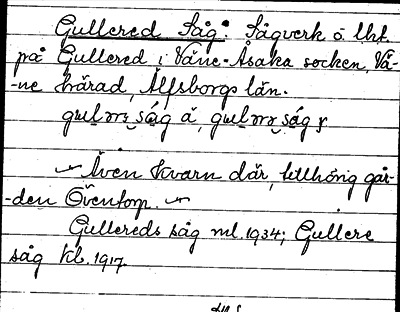 Gullered Såg: Sågverk o. lht
på Gullered i Väne-Åsaka socken, Vä-
-ne härad, Älfsborgs län.
såg
Även kvarn där, tillhörig går-
-den Öventorp.
Gullereds såg ml. 1934; Gullere
såg kl. 1917.